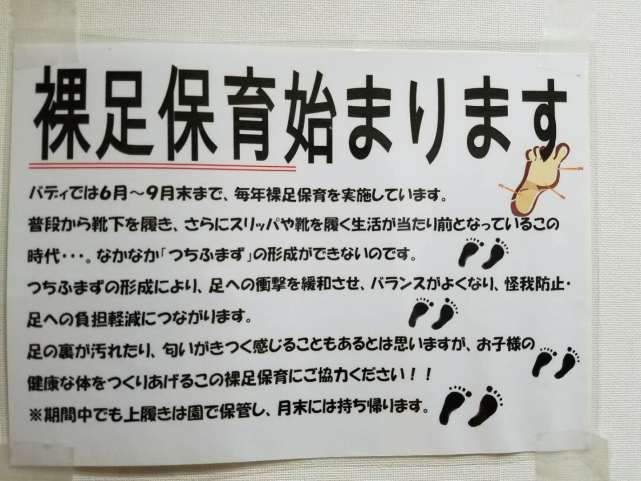 裸足保育始まります
バディでは6月～9月末まで、毎年裸足保育を実施しています。
普段から靴下を履き、さらにスリッパや靴を履く生活が当たり前となっているこの
時代・・・。なかなか「つちふまず」の形成ができないのです。
つちふまずの形成により、足への衝撃を緩和させ、バランスがよくなり、怪我防止・
足への負担軽減につながります。
足の裏が汚れたり、匂いがきつく感じることもあるとは思いますが、お子様の
健康な体をつくりあげるこの裸足保育にご協力ください！！
※期間中でも上履きは園で保管し、月末には持ち帰ります。